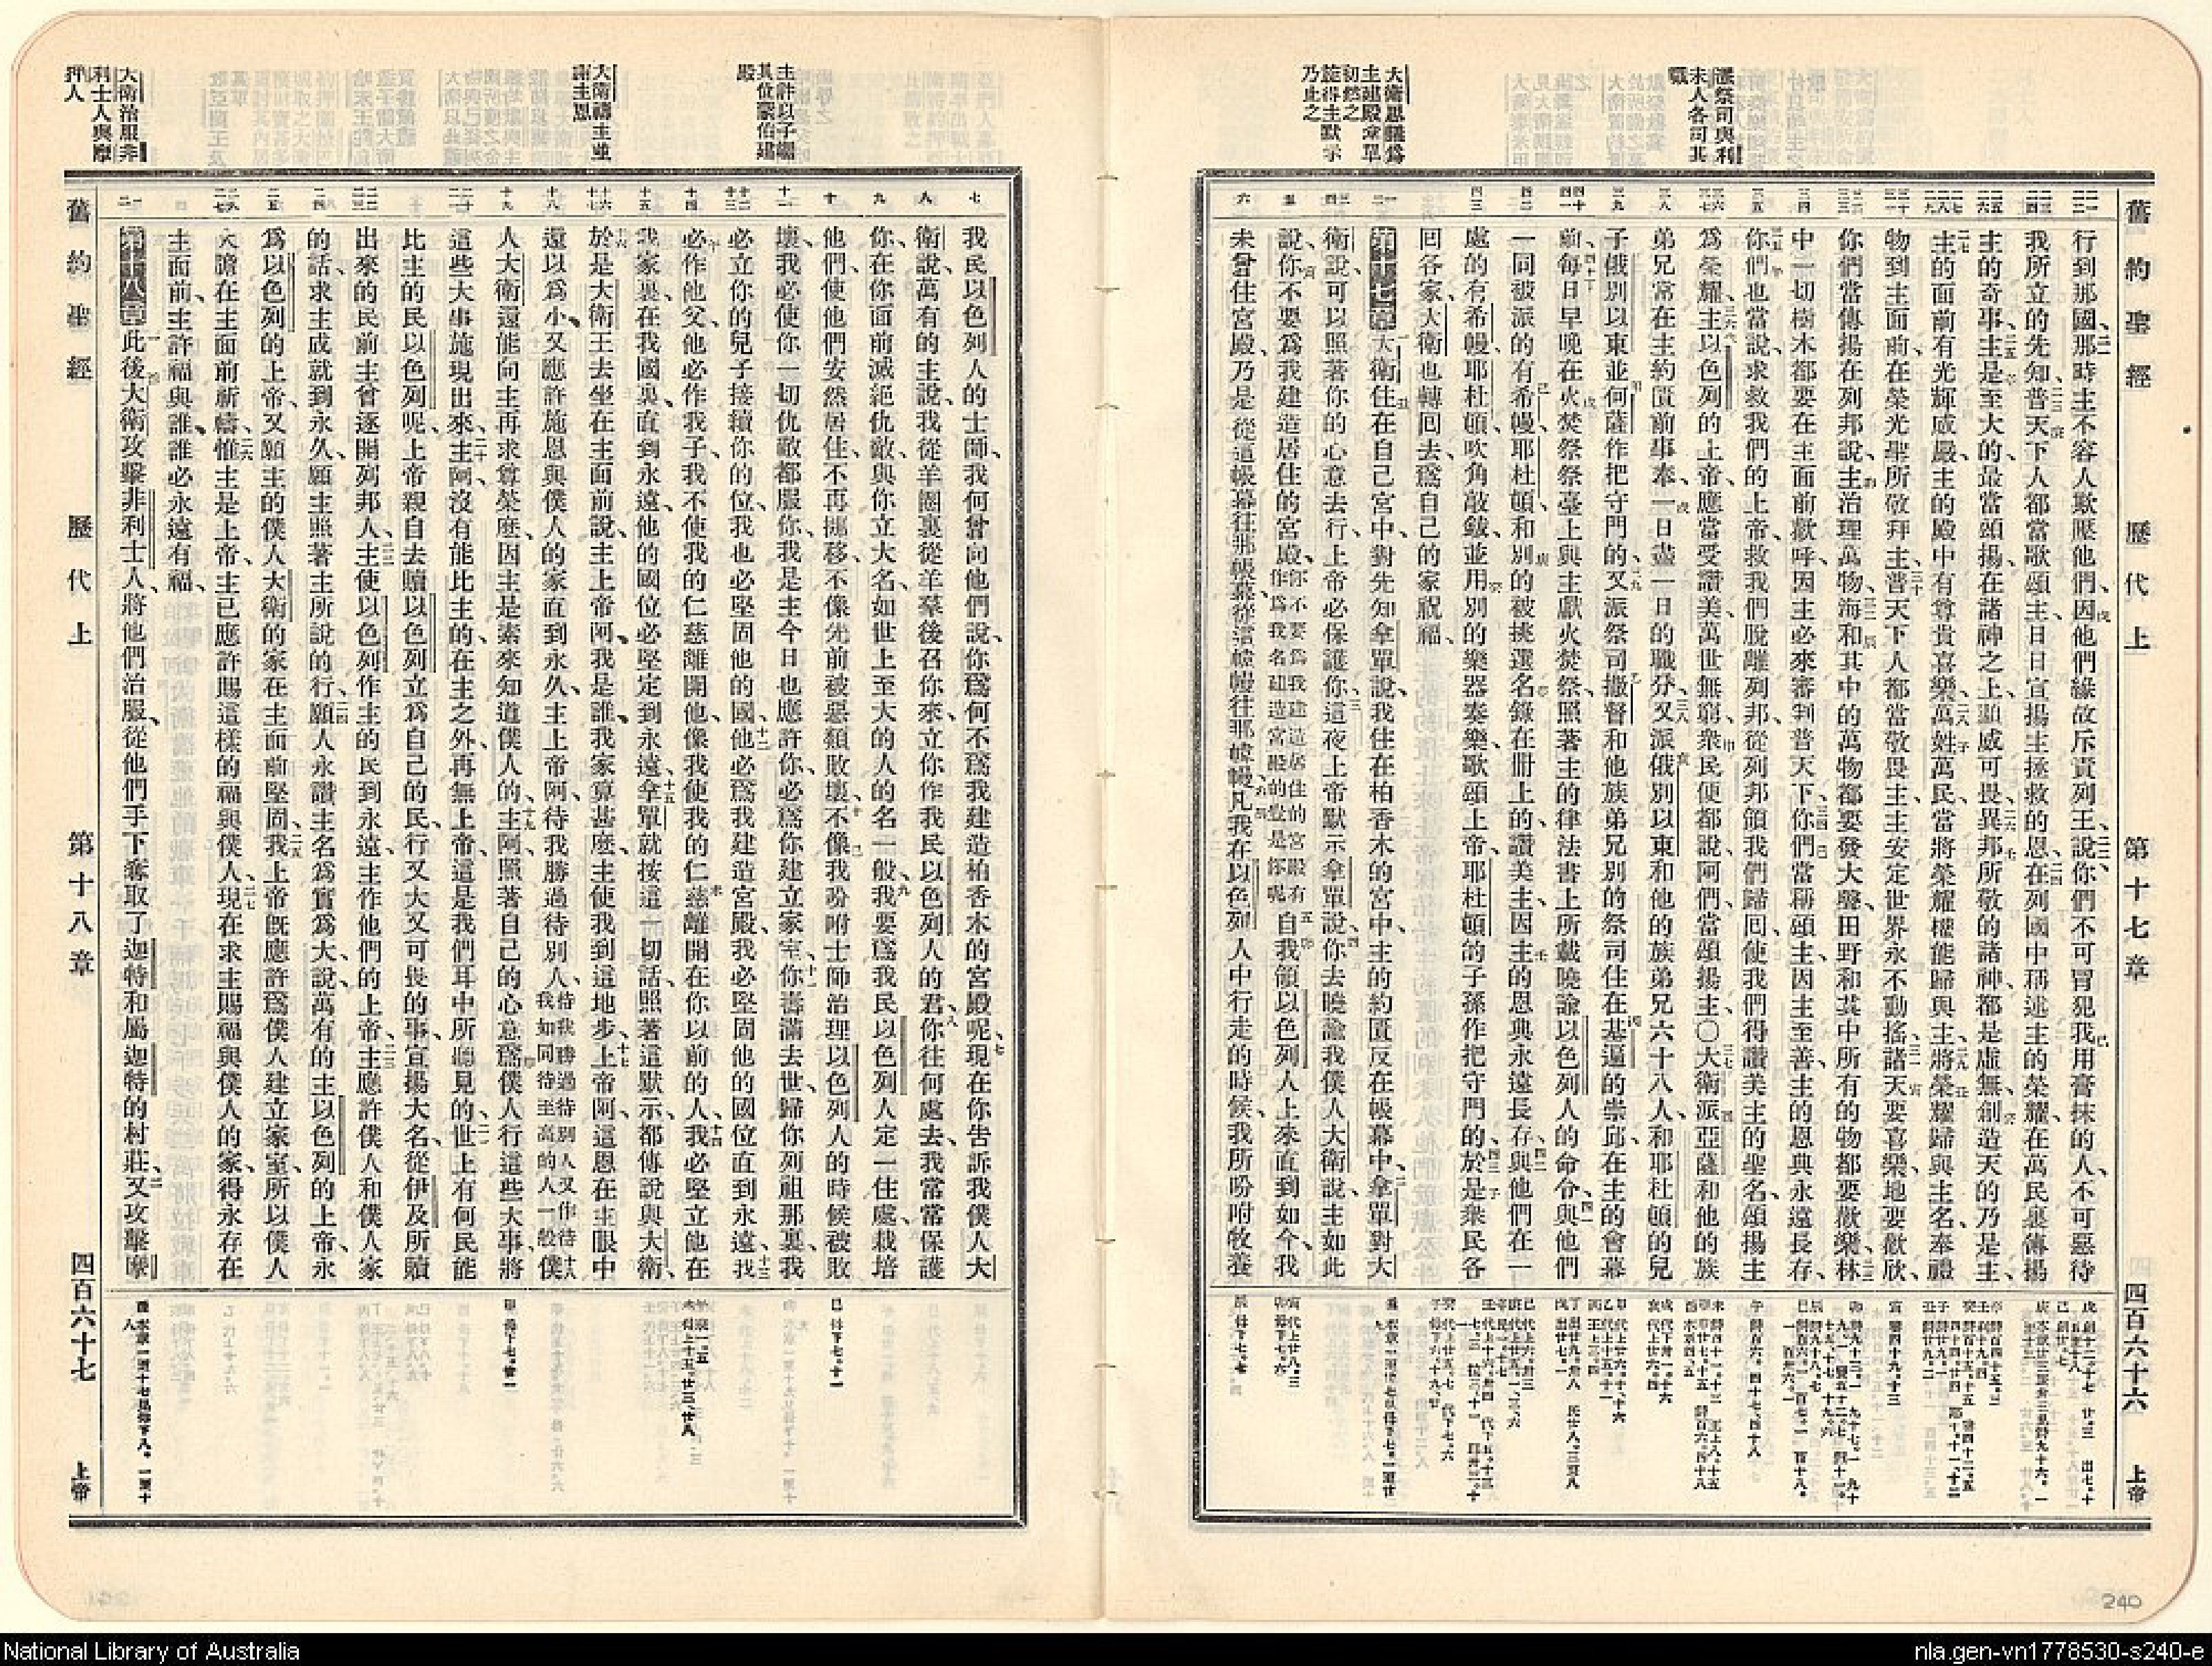 舊約聖經 歷代上 第十七章 四百六十六 上帝
派祭司與利
未人各司其
職
大衛思議爲
主建殿拿單
初然之
旋得主默示
乃止之
行到那國、那時主不容人欺壓他們、因他們緣故斥責列王、說你們不可冒犯我用膏抹的人、不可惡待
我所立的先知、普天下人都當歌頌主、日日宣揚主拯救的恩、在列國中稱述主的榮耀、在萬民裏傳揚
主的奇事、主是至大的、最當頌揚、在諸神之上、顯威可畏、異邦所敬的諸神、都是虛無、創造天的乃是主、
主的面前有光輝威嚴、主的殿中有尊貴喜樂、萬姓萬民、當將榮耀權能歸與主、將榮耀歸與主名、奉禮
物到主面前、在榮光聖所敬拜主、普天下人都當敬畏主、主安定世界永不動搖、諸天要喜樂、地要歡欣、
你們當傳揚在列邦、說、主治理萬物、海和其中的萬物都要發大聲、田野和其中所有的物都要歡樂、林
中一切樹木都要在主面前歡呼、因主必來審判普天下、你們當稱頌主、因主至善、主的恩典永遠長存、
你們也當說、求救我們的上帝、救我們脫離列邦、從列邦領我們歸回、使我們得讚美主的聖名、頌揚主
爲榮耀、主以色列的上帝、應當受讚美、萬世無窮、衆民便都說阿們、當頌揚主、〇大衛派亞薩和他的族
弟兄常在主約匱前事奉、一日盡一日的職分、又派俄別以東和他的族弟兄六十八人、和耶杜頓的兒
子俄別以東並何薩作把守門的、又派祭司撒督和他族弟兄別的祭司住在基遍的崇邱、在主的會幕
前、每日早晚在火焚祭祭臺上與主獻火焚祭、照著主的律法書上所載曉諭以色列人的命令、與他們
一同被派的有希幔、耶杜頓、和別的被挑選名錄在册上的、讚美主、因主的恩典永遠長存、與他們在一
處的有希幔、耶杜頓、吹角敲鈸、並用別的樂器奏樂、歌頌上帝、耶杜頓的子孫作把守門的、於是衆民各
回各家、大衛也轉回去、爲自己的家祝福、
第十七章 大衛住在自己宮中、對先知拿單說、我住在柏香木的宮中、主的約匱反在帳幕中、拿單對大
衛說、可以照著你的心意去行、上帝必保護你、這夜上帝默示拿單說、你去曉諭我僕人大衛說、主如此
說、你不要爲我建造居住的宮殿、你不要爲我建造居住的宮殿有作爲我名建造宮殿的豈是你呢自我領以色列人上來直到如今、我
未曾住宮殿、乃是從這帳幕往那帳幕、從這幃幔往那幃幔、凡我在以色列人中行走的時候、我所吩咐牧養
舊約聖經 歷代上 第十八章 四百六十七 上帝
主許以子嗣
其位蒙伯建
殿
大衛禱主並
謝主恩
大衛治服非
利士人與摩
押人
我民以色列人的士師、我何曾向他們說、你爲何不爲我建造柏香木的宮殿呢、現在你告訴我僕人大
衛說、萬有的主說、我從羊圈裏從羊羣後召你來、立你作我民以色列人的君、你往何處去、我常常保護
你、在你面前滅絕仇敵、與你立大名、如世上至大的人的名一般、我要爲我民以色列人定一住處、栽培
他們、使他們安然居住、不再挪移、不像先前被惡類敗壞、不像我吩咐士師治理以色列人的時候被敗
壞、我必使你一切仇敵都服你、我是主今日也應許你、必爲你建立家室、你壽滿去世、歸你列祖那裏、我
必立你的兒子接續你的位、我也必堅固他的國、他必爲我建造宮殿、我必堅固他的國位直到永遠、我
必作他父、他必作我子、我不使我的仁慈離開他、像我使我的仁慈離開在你以前的人、我必堅立他在
我家裏在我國裏、直到永遠、他的國位必堅定到永遠、拿單就按這一切話、照著這默示、都傳說與大衛、
於是大衛王去坐在主面前說、主上帝阿、我是誰、我家算甚麽、主使我到這地步、上帝阿、這恩在主眼中
還以爲小、又應許施恩與僕人的家直到永久、主上帝阿、待我勝過待別人、待我勝過待別人又作待我如同待至高的人一般僕
人大衛還能向主再求尊榮麽、因主是素來知道僕人的、主阿、照著自己的心意、爲僕人行這些大事、將
這些大事施現出來、主阿、沒有能比主的、在主之外、再無上帝、這是我們耳中所聽見的、世上有何民能
比主的民以色列呢、上帝親自去贖以色列、立爲自己的民、行又大又可畏的事、宣揚大名、從伊及所贖
出來的民前、主曾逐開列邦人、主使以色列作主的民到永遠、主作他們的上帝、主應許僕人和僕人家
的話、求主成就到永久、願主照著主所說的行、願人永讚主名爲實爲大、說、萬有的主、以色列的上帝、永
爲以色列的上帝、又願主的僕人大衛的家在主面前堅固、我上帝旣應許爲僕人建立家室、所以僕人
大膽在主面前祈禱、惟主是上帝、主已應許賜這樣的福與僕人、現在求主賜福與僕人的家、得永存在
主面前、主許福與誰、誰必永遠有福、
第十八章 此後大衛攻擊非利士人、將他們治服、從他們手下奪取了迦特和屬迦特的村莊、又攻擊摩
240
National Library of Australia
nla.gen-vn1778530-s240-e